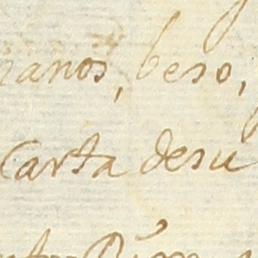 manos, beso,
Carta desu